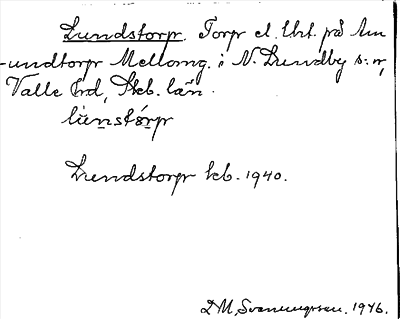 Lundstorp. Torp el. lht. på Am-
undtorp Mellomg. i N. Lundby s:n,
Valle hd, Skb. län.
lùnstórp
Lundstorp kb. 1940.
D M, Svenungsson. 1946.